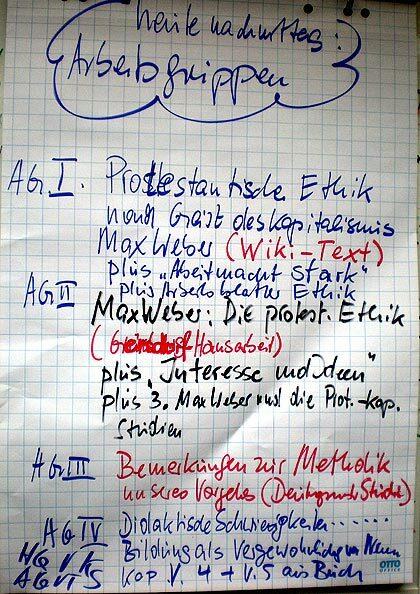 heute nachmittag:
Arbeitsgruppen
AG I. Protestantische Ethik
und Geist des Kapitalismus
Max Weber (Wiki-Text)
plus "Arbeit macht stark"
AG II plus Arbeitsblätter Ethik
Max Weber: Die protest. Ethik
Hausarbeit)
plus "Interesse und Ideen"
plus 3. Max Weber und die Prot.-kap.
Studien
AG III Bemerkungen zur Methodik
unseres Vorgehens
AG IV Didaktische Schwierigkeiten......
Bildung als
AG VI S Kap. V. 4 + V. 5 aus Buch
OTTO
OFFICE